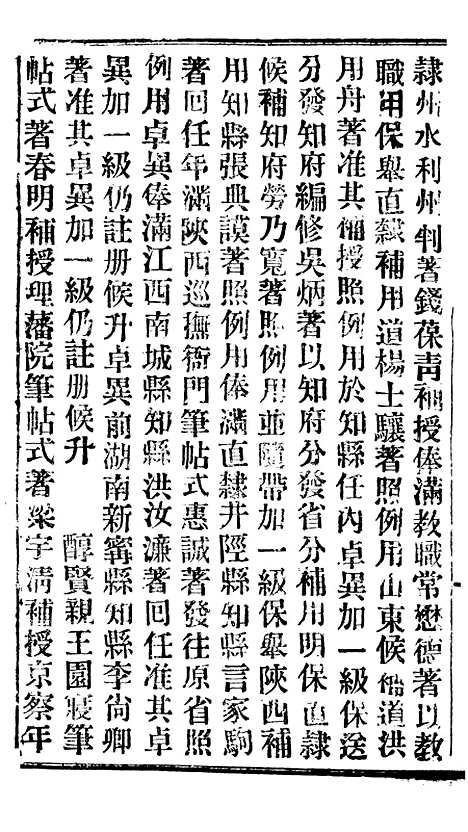 隸州水利州判著錢葆青補授俸滿教職常懋德著以教
職用保舉直隸補用道楊士驤著照例用山東候補道洪
用舟著准其補授照例用於知縣任內卓異加一級保送
分發知府編修吳炳著以知府分發省分補用明保直隸
候補知府勞乃寬著照例用並隨帶加一級保舉陝西補
用知縣張典謨著照例用俸滿直隸井陘縣知縣言家駒
著回任年滿陝西巡撫衙門筆帖式惠誠著發往原省照
例用卓異俸滿江西南城縣知縣洪汝濂著回任准其卓
異加一級仍註册候升卓異前湖南新寗縣知縣李尙卿
著准其卓異加一級仍註册候升　醇賢親王園寢筆
帖式著春明補授理藩院筆帖式著梁宇淸補授京察年